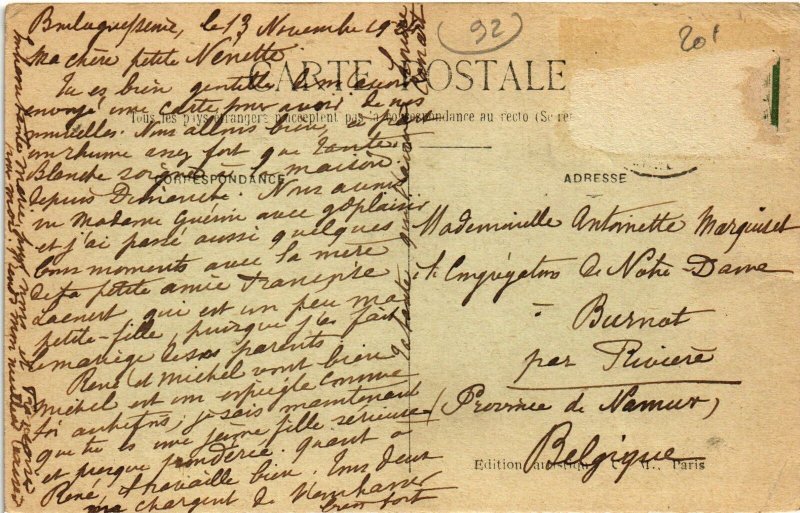 le 13 Novembre 19
Ma chère petite Nénette
Tu es bien gentille de m'avoir
envoyé une carte pour avoir de nos
nouvelles. Nous allons bien, à part
un rhume assez fort que tante
Blanche soigne à la maison
depuis Dimanche. Nous avons
vu Madame Guérin avec plaisir
et j'ai passé aussi quelques
bons moments avec la mère
de ta petite amie Françoise
qui est un peu ma
petite-fille, puisque j'ai fait
le mariage de ses parents
René et Michel vont bien
Michel est un espiègle comme
toi autrefois, je sais maintenant
que tu es une jeune fille sérieuse
et presque pondérée. Quant à
René, il travaille bien. Tous deux
me chargent de t'embrasser
bien fort
92
201
CARTE POSTALE
Tous les pays étrangers n'acceptent pas la correspondance au recto (Se re
CORRESPONDANCE
ADRESSE
Mademoiselle Antoinette
Congrégation de Notre-Dame
à Burnot
par Rivière
(Province de Namur)
Belgique
Edition artistique M., Paris